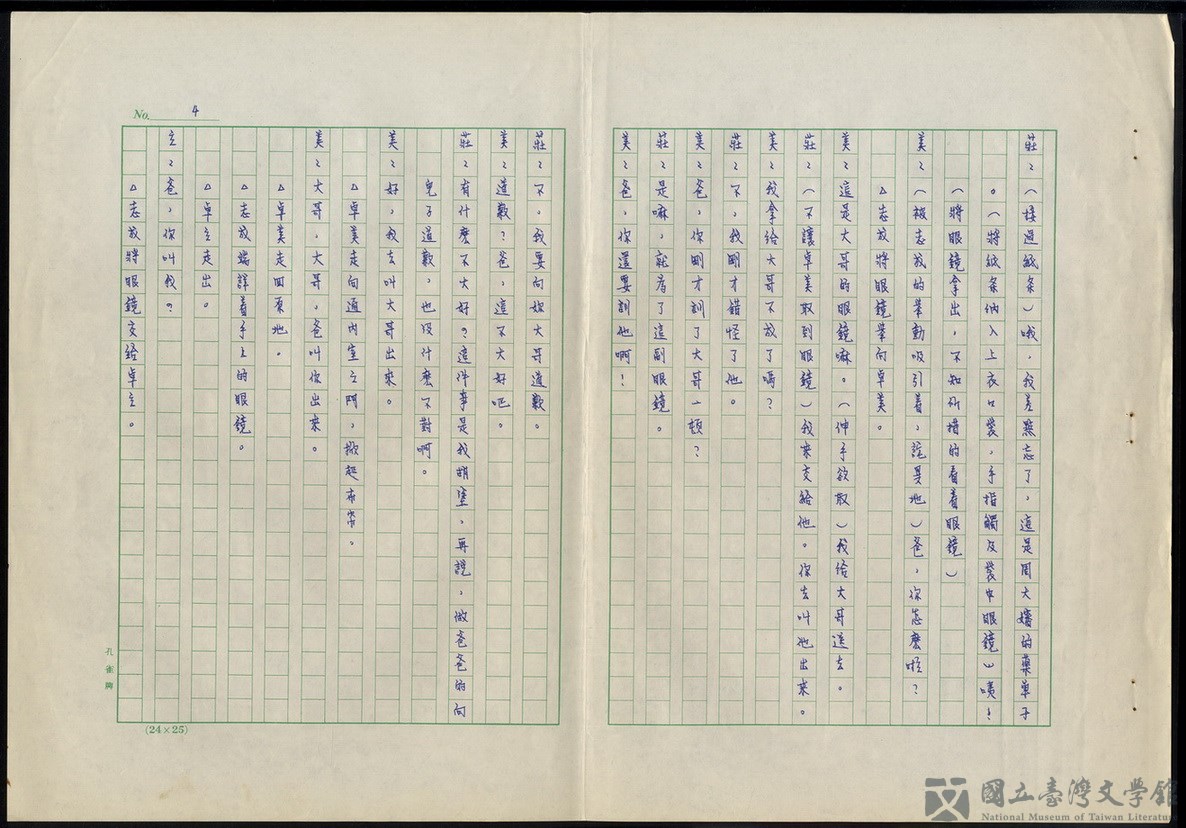 莊:(接過紙条)哦,我差點忘了,這是周大嬸的藥單子
。(將紙条納入上衣口袋,手指觸及袋中眼鏡)咦!
(將眼鏡拿出,不知所措的看着眼鏡)
美:(被志成的舉動吸引着,詫異地)爸,你怎麼啦?
△志成將眼鏡舉向卓美。
美:這是大哥的眼鏡嘛。(伸手欲取)我給大哥送去。
莊:(不讓卓美取到眼鏡)我來交給他。你去叫他出來。
美:我拿給大哥不成了嗎?
莊:不,我剛才錯怪了他。
美:爸,你剛才訓了大哥一頓?
莊:是嘛,就為了這副眼鏡。
美:爸,你還要訓他啊!
莊:不,我要向妳大哥道歉。
美:道歉?爸,這不大好吧。
莊:有什麼不大好?這件事是我胡塗,再說,做爸爸的向
兒子道歉,也沒什麼不對啊。
美:好,我去叫大哥出來。
△卓美走向通內室之門,掀起布帘。
美:大哥,大哥,爸叫你出來。
△卓美走回原地。
△志成端詳着手上的眼鏡。
△卓立走出。
立:爸,你叫我?
△志成將眼鏡交給卓立。
No. 4
孔雀牌
(24×25)
國立臺灣文學館
National Museum of Taiwan Literature